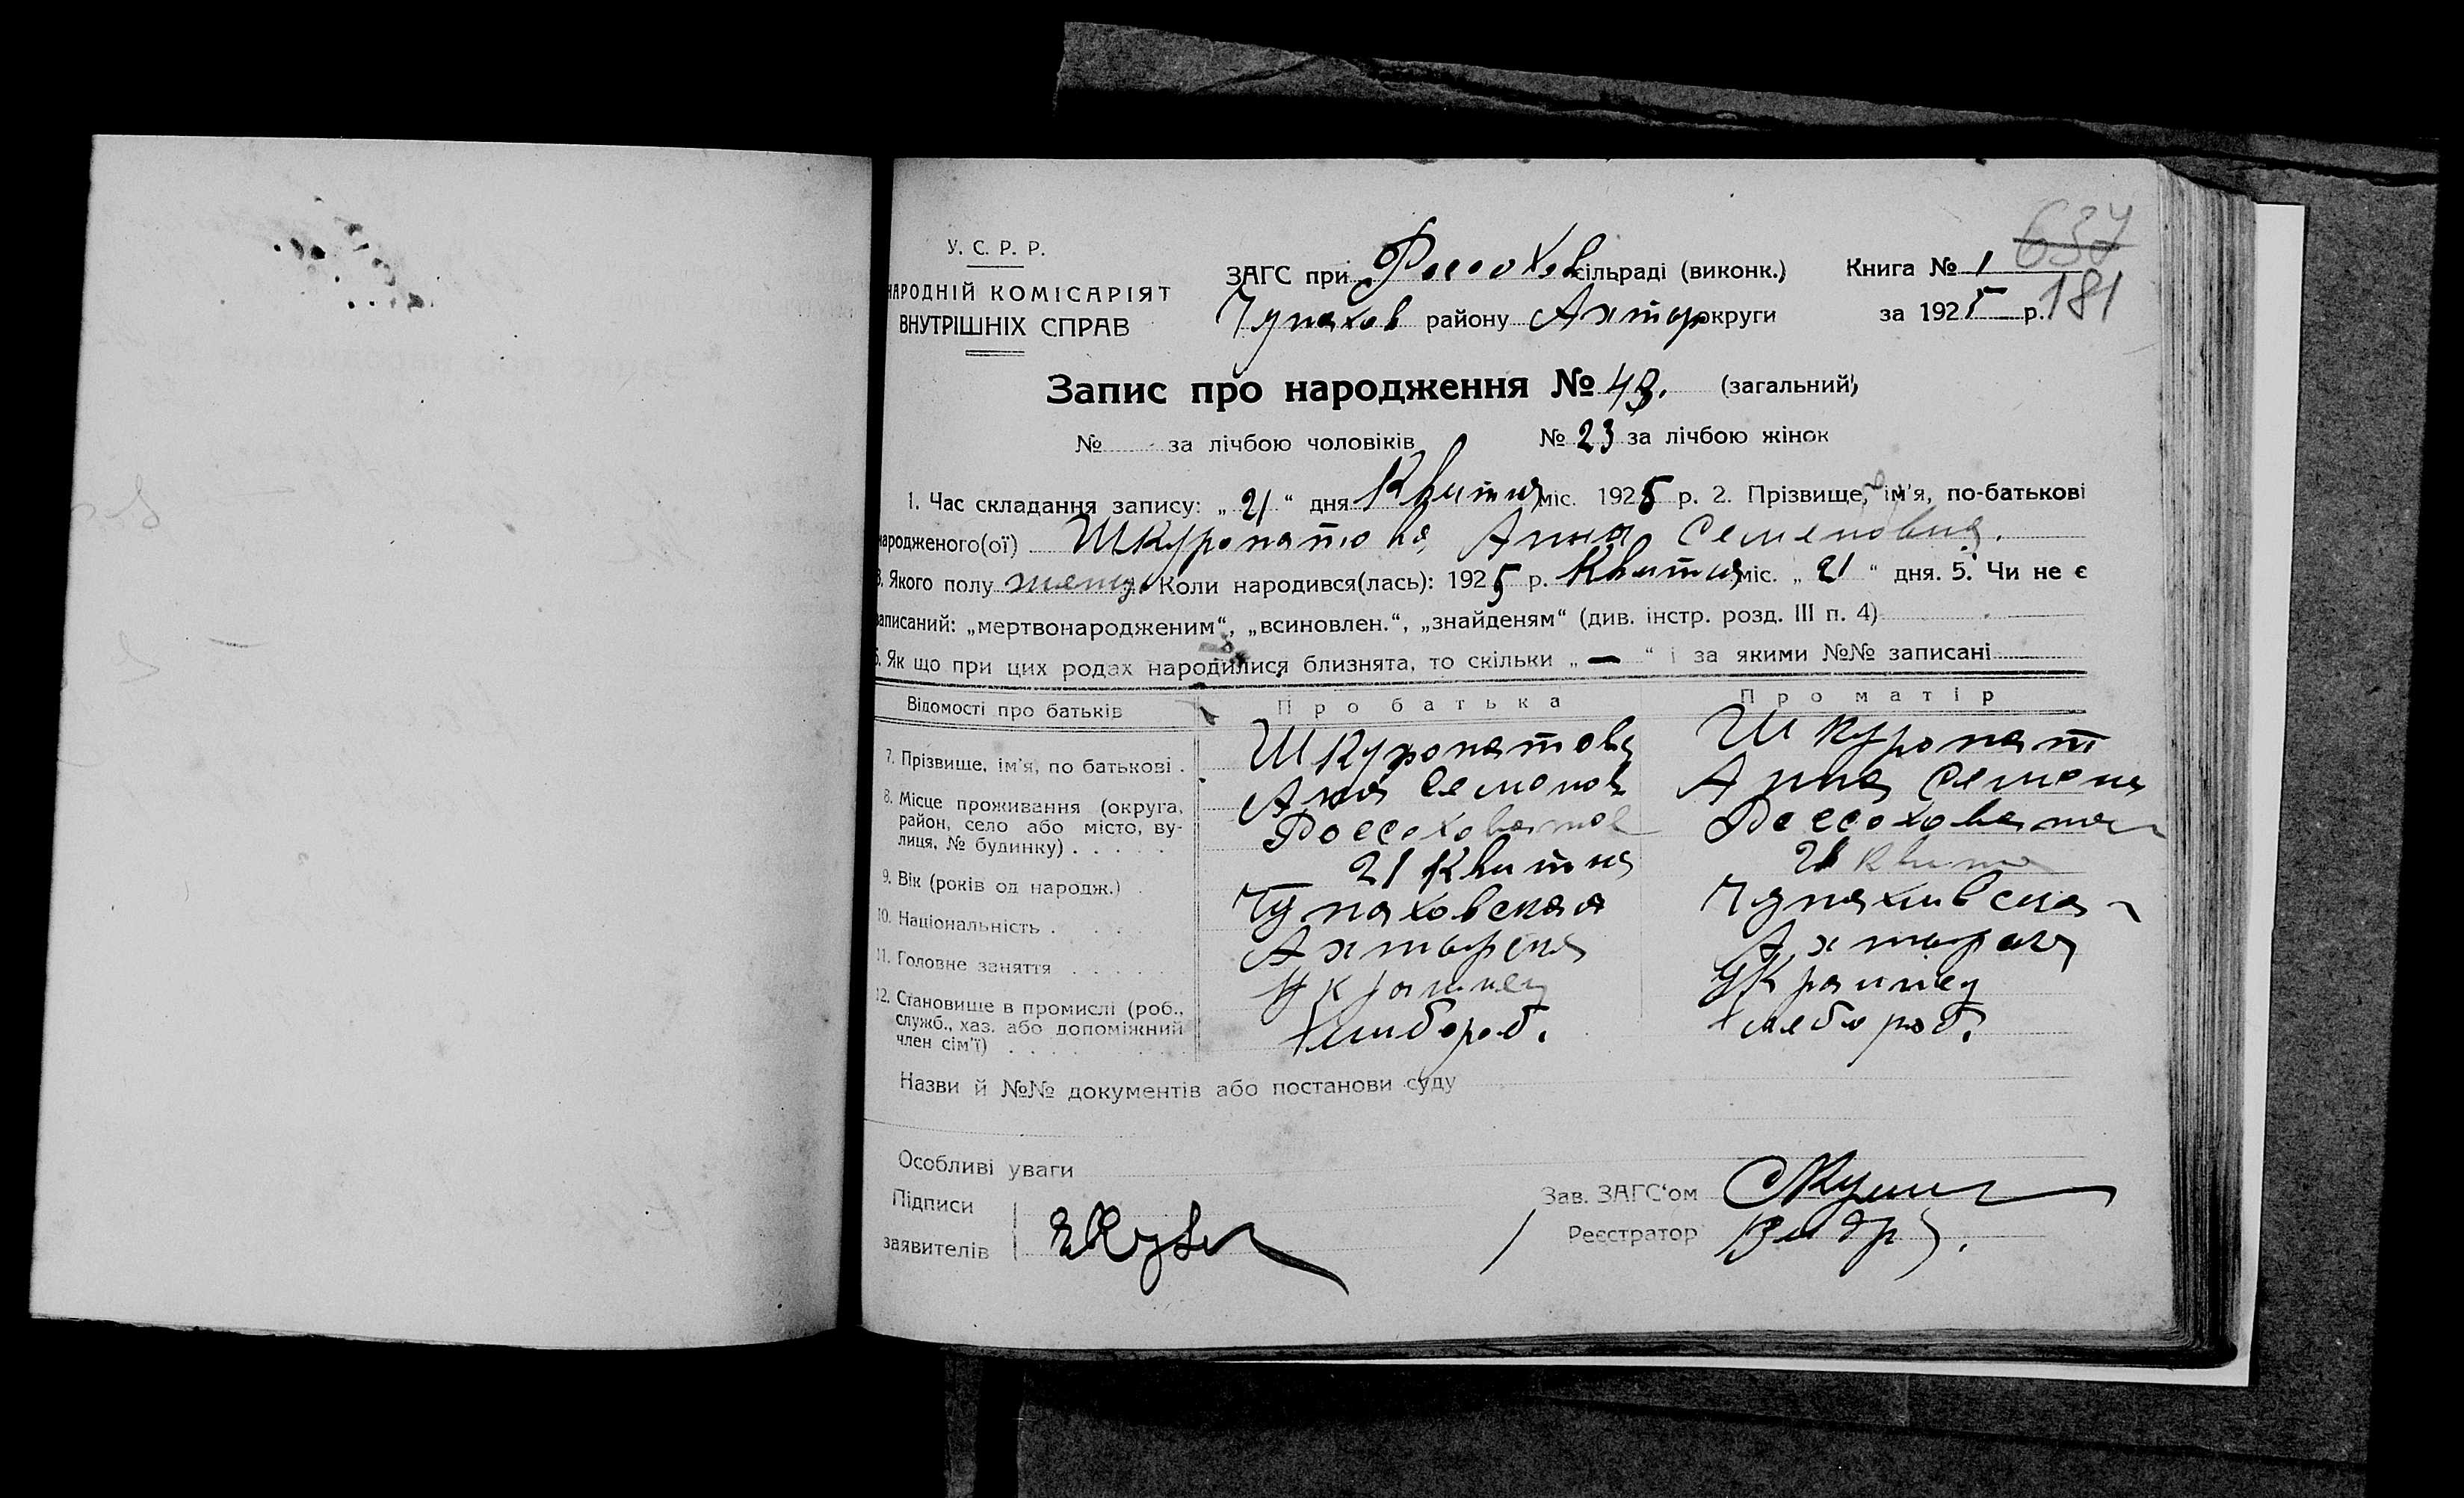 637
У. С. Р. Р.
НАРОДНІЙ КОМІСАРІЯТ
ВНУТРІШНІХ СПРАВ
ЗАГС при Россохов сільраді (виконк.)
Чупахов району Ахтир округи
Книга № 1
за 1925 р. 181
Запис про народження № 43. (загальний)
№ за лічбою чоловіків № 23 за лічбою жінок
1. Час складання запису: „ 21 “ дня Квитня міс. 1925 р. 2. Прізвище, ім'я, по-батькові
народженого(ої) Шкуропатова Анна Семеновна.
3. Якого полу женщ. Коли народився(лась): 1925 р. Квитня міс. „ 21 “ дня. 5. Чи не є
записаний: „мертвонародженим“, „всиновлен.“, „знайденям“ (див. інстр. розд. III п. 4)
6. Як що при цих родах народилися близнята, то скільки „ — “ і за якими №№ записані
Відомості про батьків Про батька Про матір
7. Прізвище, ім'я, по батькові . Шкуропатова Шкуропат
Анна Семенов Анна Семена
8. Місце проживання (округа,
район, село або місто, ву-
лиця, № будинку) . . . . . Россоховатов Россоховата
9. Вік (років од народж.) . 21 Квитня 21 Квитня
10. Національність . . . . Чупаховская Чупахивска
11. Головне заняття . . . . . Ахтырска
12. Становище в промислі (роб.,
служб., хаз. або допоміжний
член сім'ї) . . . . . Украинец Украинец
Хлибороб. Хлебороб.
Назви й №№ документів або постанови суду
Особливі уваги
Підписи
заявителів
Зав. ЗАГС'ом
Реєстратор